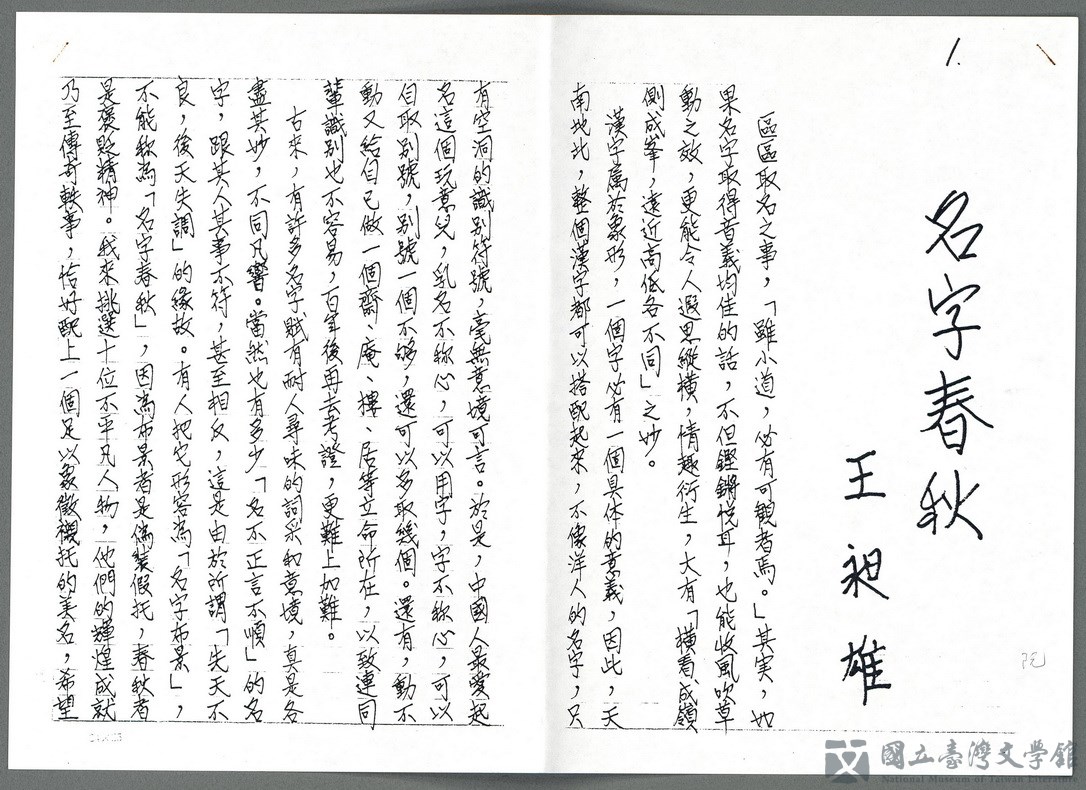 1.
名字春秋
王昶雄
區區取名之事，「雖小道，必有可觀者焉。」其實，如
果名字取得音義均佳的話，不但鏗鏘悅耳，也能收風吹草
動之效，更能令人遐思縱橫，情趣衍生，大有「橫看成嶺
側成峯，遠近高低各不同」之妙。
漢字屬於象形，一個字必有一個具体的意義，因此，天
南地北，整個漢字都可以搭配起來，不像洋人的名字，只
有空洞的識別符號，毫無意境可言。於是，中國人最愛起
名這個玩意兒，乳名不称心，可以用字，字不称心，可以
自取別號，別號一個不够，還可以多取幾個。還有，動不
動又給自己做一個齋、庵、樓、居等立命所在，以致連同
輩識別也不容易，百年後再去考證，更難上加難。
古來，有許多名字，賦有耐人尋味的詞采和意境，真是各
盡其妙，不同凡響。當然也有多少「名不正言不順」的名
字，跟其人其事不符，甚至相反，這是由於所謂「先天不
良，後天失調」的緣故。有人把它形容為「名字布景」，
不能称為「名字春秋」，因為布景者是偽裝假托，春秋者
是褒貶精神。我來挑選十位不平凡人物，他們的輝煌成就
乃至傳奇軼事，恰好配上一個足以象徵襯托的美名，希望
院
國立臺灣文學館
National Museum of Taiwan Literature